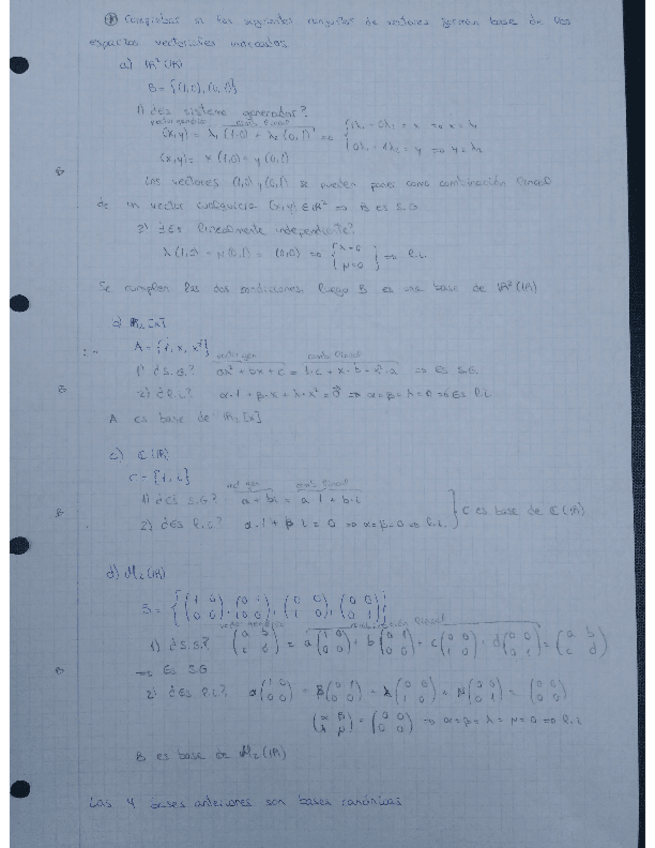 Comprobar si los siguientes conjuntos de vectores forman base de los
espacios vectoriales indicados
a) ℝ²(ℝ)
B = {(1,0), (0,1)}
1) ¿Es sistema generador?
vector genérico comb. lineal
(x,y) = λ₁ (1,0) + λ₂ (0,1) ⇒ { 1λ₁ + 0λ₂ = x ⇒ x = λ₁
0λ₁ + 1λ₂ = y ⇒ y = λ₂
(x,y) = x (1,0) + y (0,1)
Los vectores (1,0) y (0,1) se pueden poner como combinación lineal
de un vector cualquiera (x,y) ∈ ℝ² ⇒ B es S.G
2) ¿Es linealmente independiente?
λ (1,0) + μ (0,1) = (0,0) ⇒ { λ=0 μ=0 } ⇒ l.i.
Se cumplen las dos condiciones, luego B es una base de ℝ²(ℝ)
ℝ₂[x]
A = {1, x, x²}
vector gen comb. lineal
1) ¿S.G.? ax² + bx + c = 1·c + x·b + x²·a ⇒ es S.G.
2) ¿l.i.? α·1 + β·x + λ·x² = 0⃗ ⇒ α=β=λ=0 ⇒ Es l.i
A es base de ℝ₂[x]
c) ℂ(ℝ)
C = {1, i}
vect gen comb lineal
1) ¿Es S.G.? a + bi = a·1 + b·i
2) ¿Es l.i.? α·1 + β·i = 0 ⇒ α=β=0 ⇒ l.i. } C es base de ℂ(ℝ)
d) M₂(ℝ)
B = {(1 0 / 0 0), (0 1 / 0 0), (0 0 / 1 0), (0 0 / 0 1)}
vector genérico combinación lineal
1) ¿S.G.? (a b / c d) = a(1 0 / 0 0) + b(0 1 / 0 0) + c(0 0 / 1 0) + d(0 0 / 0 1) = (a b / c d)
⇒ Es S.G
2) ¿Es l.i.? α(1 0 / 0 0) + β(0 1 / 0 0) + λ(0 0 / 1 0) + μ(0 0 / 0 1) = (0 0 / 0 0)
(α β / λ μ) = (0 0 / 0 0) ⇒ α=β=λ=μ=0 ⇒ l.i
B es base de M₂(ℝ)
Las 4 bases anteriores son bases canónicas